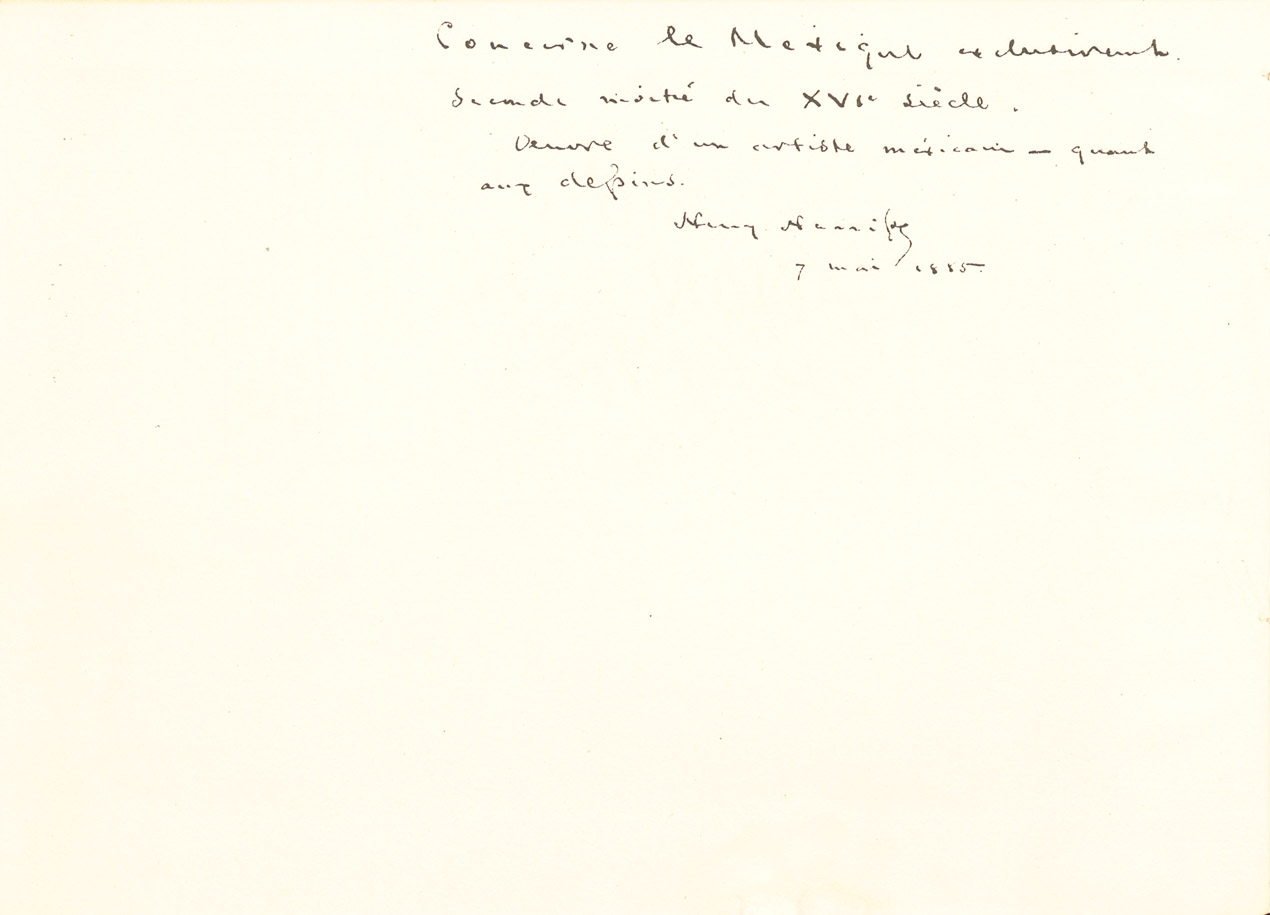 Concerne le Mexique exclusivement.
Seconde moitié du XVIe siècle.
Oeuvre d'un artiste mexicain — quant
aux dessins.
Henry Harrisse
7 mai 1885